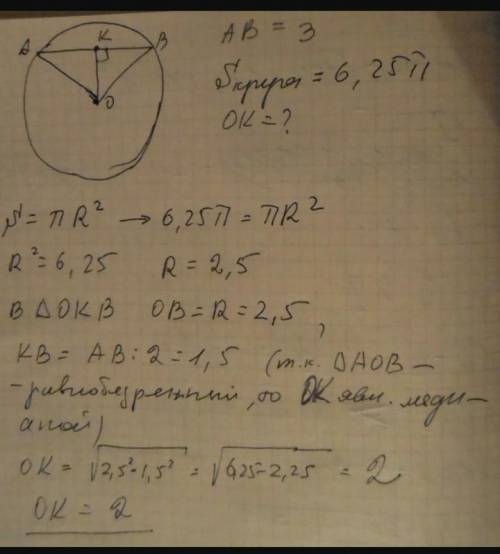 A K B
O
AB = 3
Sкруга = 6,25π
OK = ?
S = πR² → 6,25π = πR²
R² = 6,25 R = 2,5
В ΔOKB OB = R = 2,5 ,
KB = AB : 2 = 1,5 (т.к. ΔAOB –
– равнобедренный, то OK явл. меди–
аной)
OK = √2,5² - 1,5² = √6,25 - 2,25 = 2
OK = 2